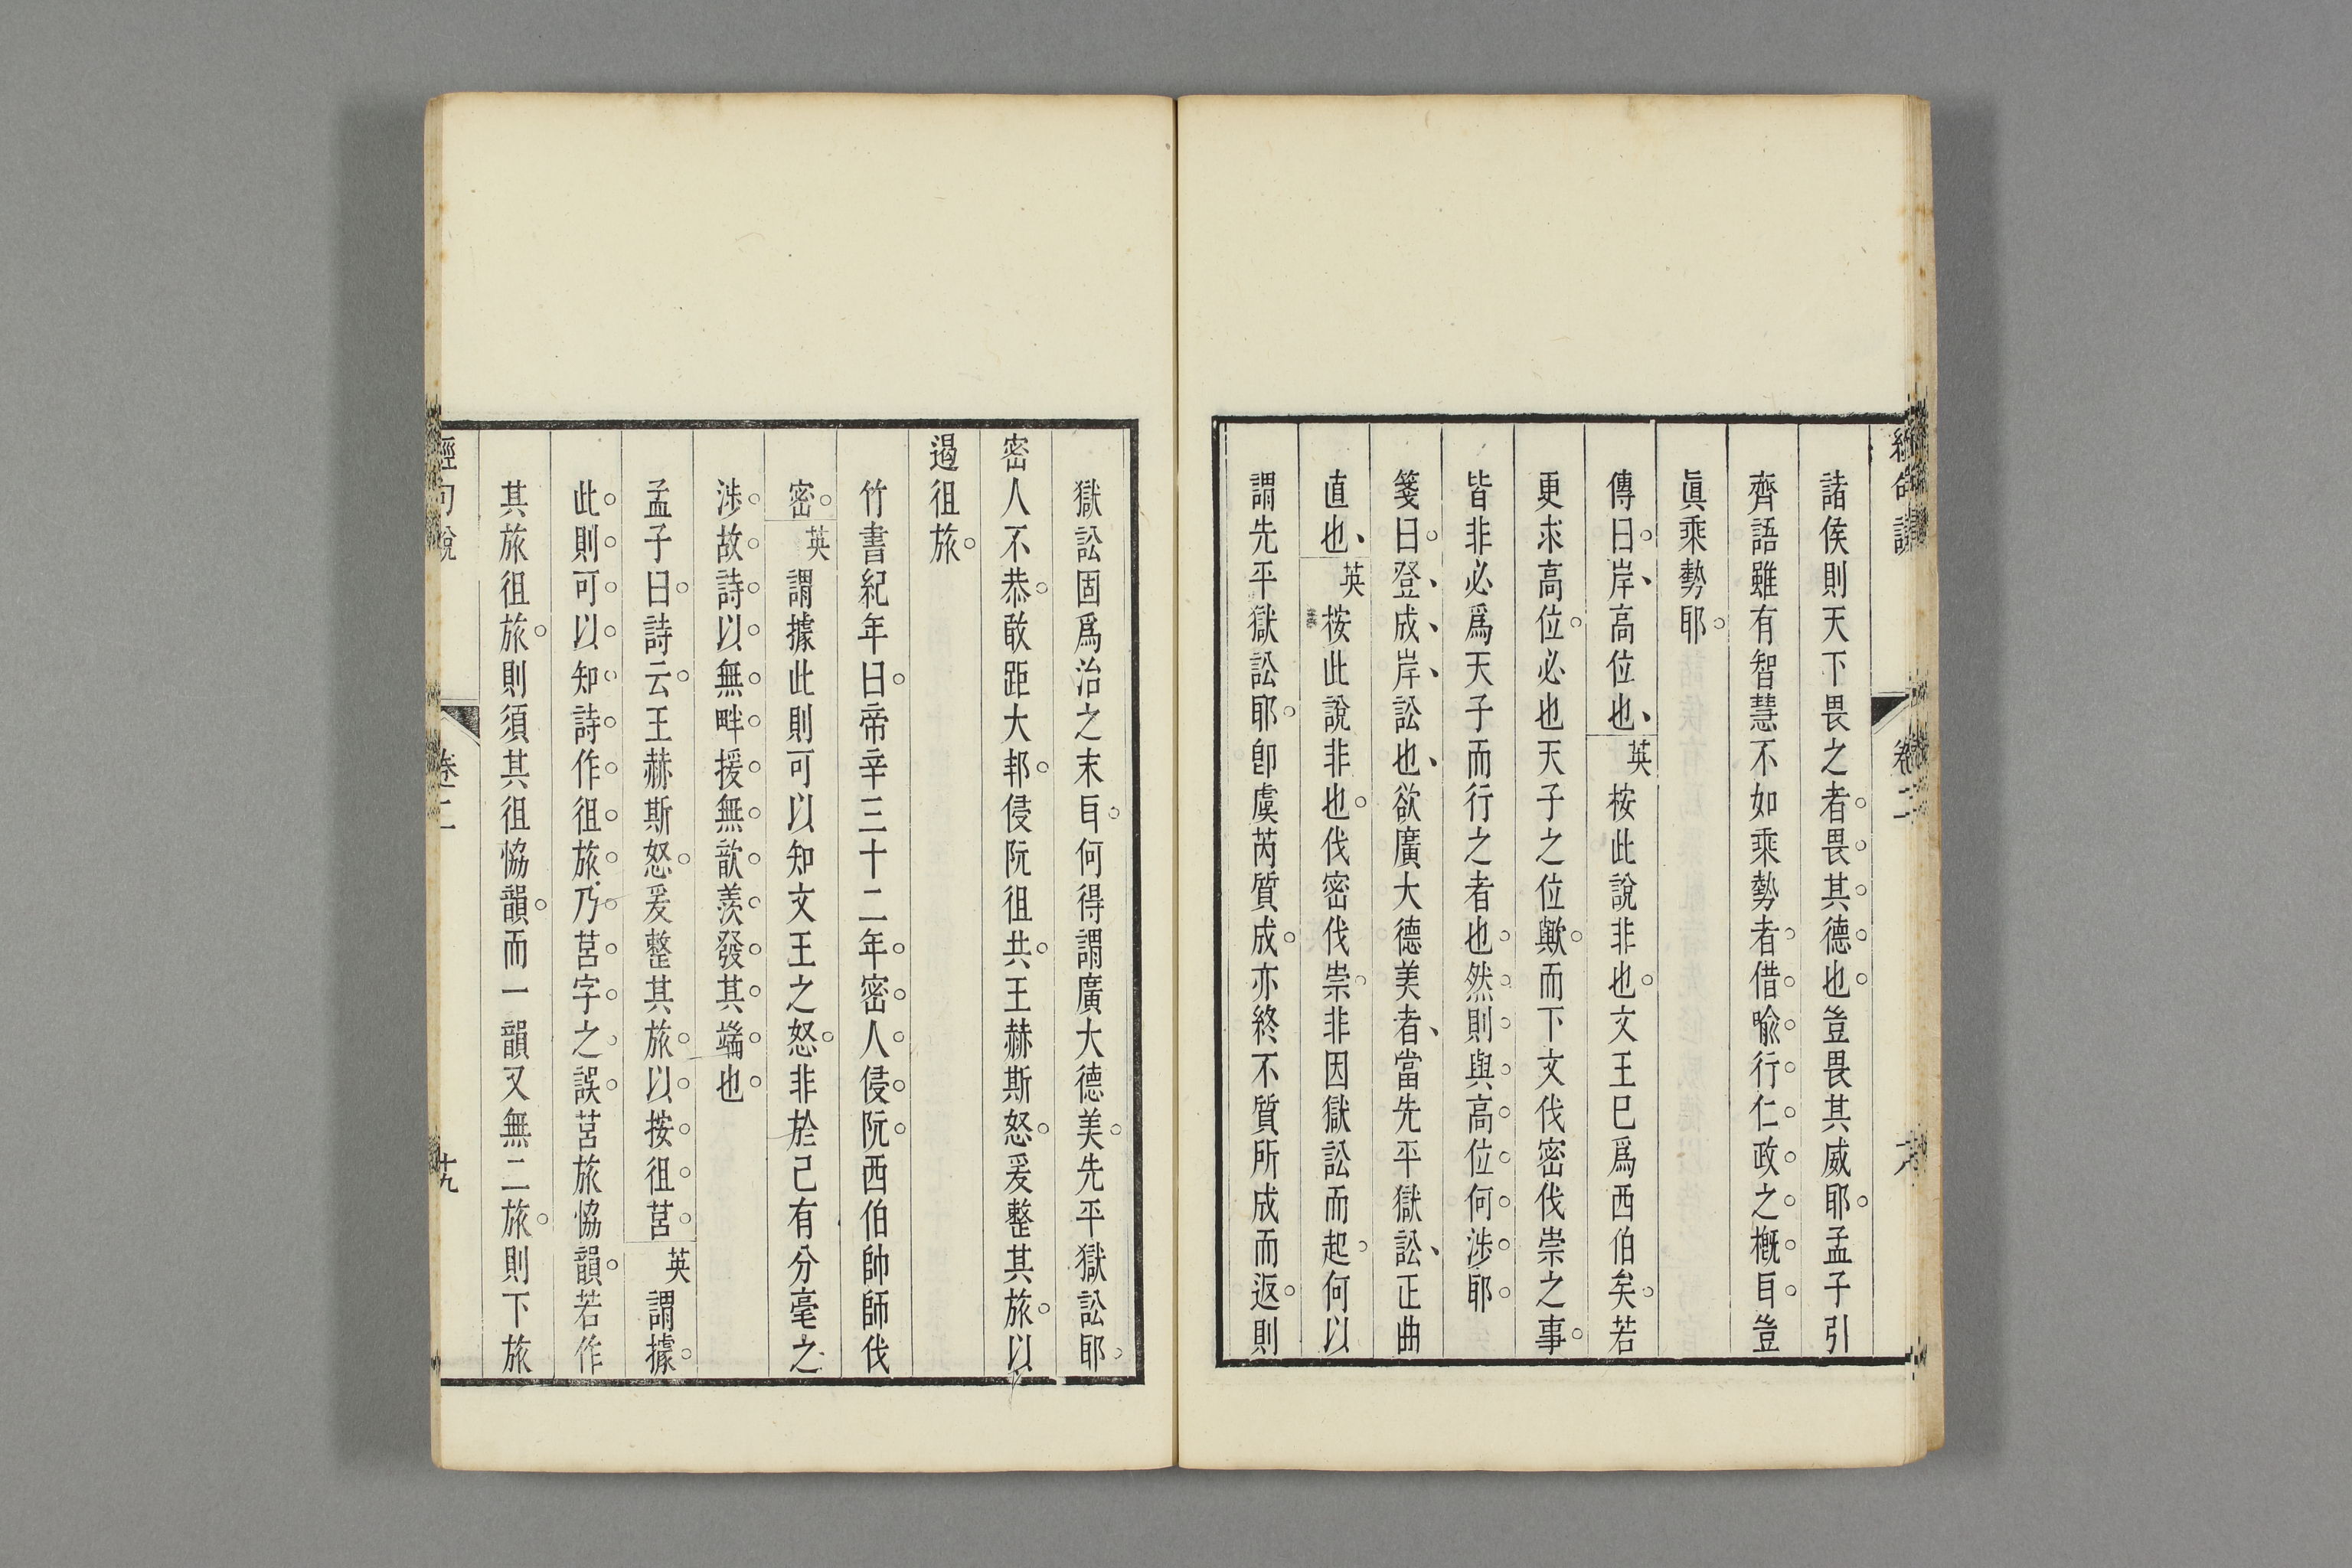 諸侯則天下畏之者畏其德也豈畏其威耶孟子引
齊語雖有智慧不如乘勢者借喩行仁政之概耳豈
眞乘勢耶
傳曰岸高位也英按此說非也文王已爲西伯矣若
更求高位必也天子之位歟而下文伐密伐崇之事
皆非必爲天子而行之者也然則與高位何涉耶
箋曰登成岸訟也欲廣大德美者當先平獄訟正曲
直也英按此說非也伐密伐崇非因獄訟而起何以
謂先平獄訟耶卽虞芮質成亦終不質所成而返則
獄訟固爲治之末耳何得謂廣大德美先平獄訟耶
密人不恭敢距大邦侵阮徂共王赫斯怒爰整其旅以
遏徂旅
竹書紀年曰帝辛三十二年密人侵阮西伯帥師伐
密英謂據此則可以知文王之怒非於己有分毫之
涉故詩以無畔援無歆羨發其端也
孟子曰詩云王赫斯怒爰整其旅以按徂莒英謂據
此則可以知詩作徂旅乃莒字之誤莒旅恊韻若作
其旅徂旅則須其徂恊韻而一韻又無二旅則下旅
經句說 卷二 十九